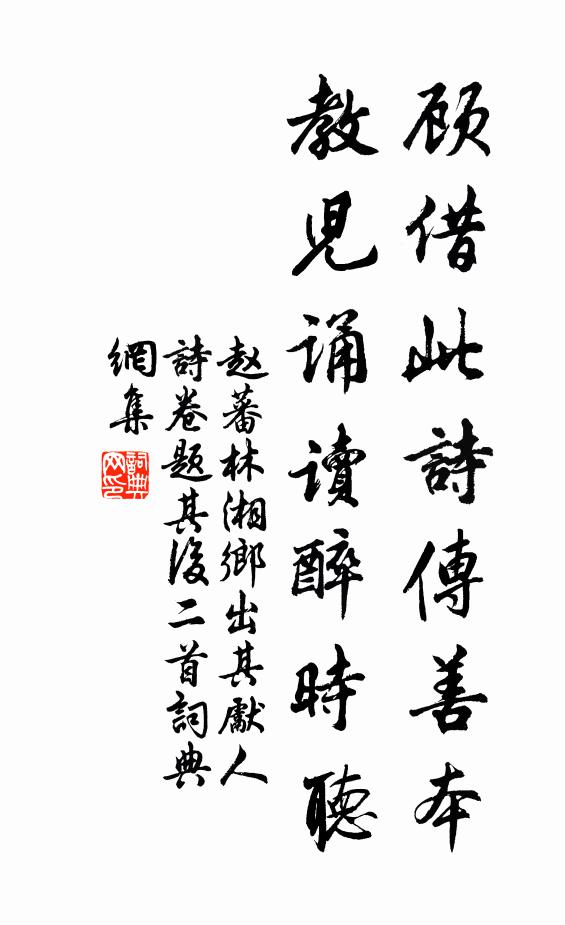 顾借此詩傳善本
教児誦讀醉時聽
赵蕃林湘鄉出其獻人
詩卷題其後二首詞典
網集
詞典
网印